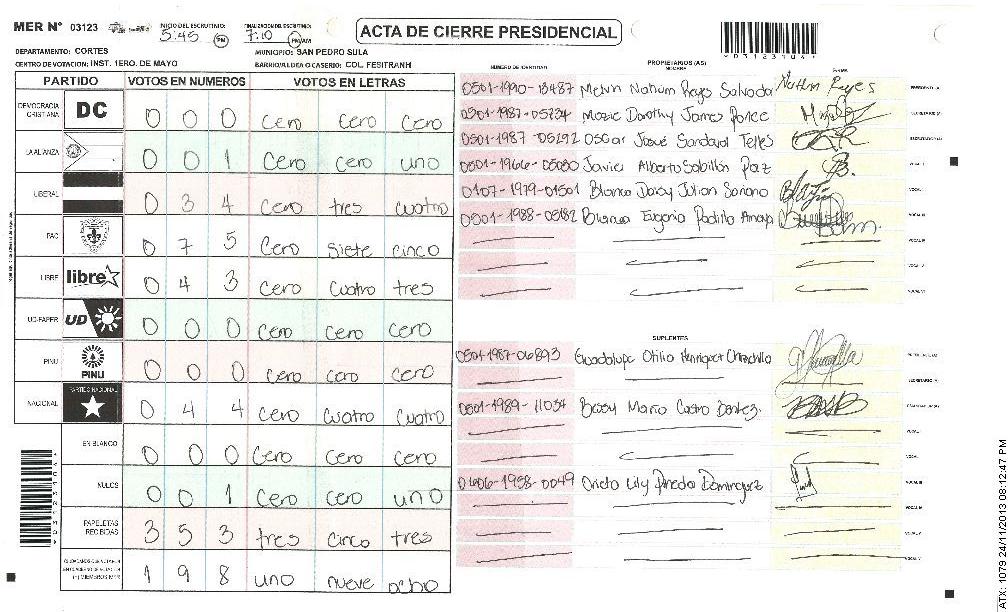 MER Nº 03123
INICIO DEL ESCRUTINIO: 5:45 PM
FINALIZACION DEL ESCRUTINIO: 7:10 PM/AM
ACTA DE CIERRE PRESIDENCIAL
*03123104*
DEPARTAMENTO: CORTES
MUNICIPIO: SAN PEDRO SULA
CENTRO DE VOTACION: INST. 1ERO. DE MAYO
BARRIO/ALDEA O CASERIO: COL. FESITRANH
PARTIDO VOTOS EN NUMEROS VOTOS EN LETRAS
DEMOCRACIA CRISTIANA DC 0 0 0 Cero Cero Cero
LA ALIANZA 0 0 1 Cero cero uno
LIBERAL 0 3 4 Cero tres cuatro
PAC 0 7 5 Cero siete cinco
LIBRE libre 0 4 3 Cero Cuatro tres
UD-FAPER UD 0 0 0 Cero cero cero
PINU PINU 0 0 0 Cero cero cero
NACIONAL PARTIDO NACIONAL 0 4 4 Cero Cuatro Cuatro
EN BLANCO 0 0 0 Cero Cero Cero
NULOS 0 0 1 Cero Cero uno
PAPELETAS RECIBIDAS 3 5 3 tres cinco tres
1 9 8 uno nueve ocho
NUMERO DE IDENTIDAD PROPIETARIOS (AS) NOMBRE FIRMA
0501-1990-13487 Melvin Nahum Reyes Salvador PRESIDENTE (A)
0501-1987-05734 Dorothy James Ponce SECRETARIO (A)
0501-1987-05292 Oscar Josué Sandoval Telles
0501-1966-05080 Javier Alberto Sabillón Paz
0107-1979-01501 Blanca Daisy Julian Soriano
Blanca Eugenia Padilla Amaya
SUPLENTES
0501-1987-06893 Guadalupe Otilia Henriquez
0501-1989-11054 Bessy Maria Castro
Lily Pineda Dominguez
ATX: 1079 24/11/2013 08:12:47 PM